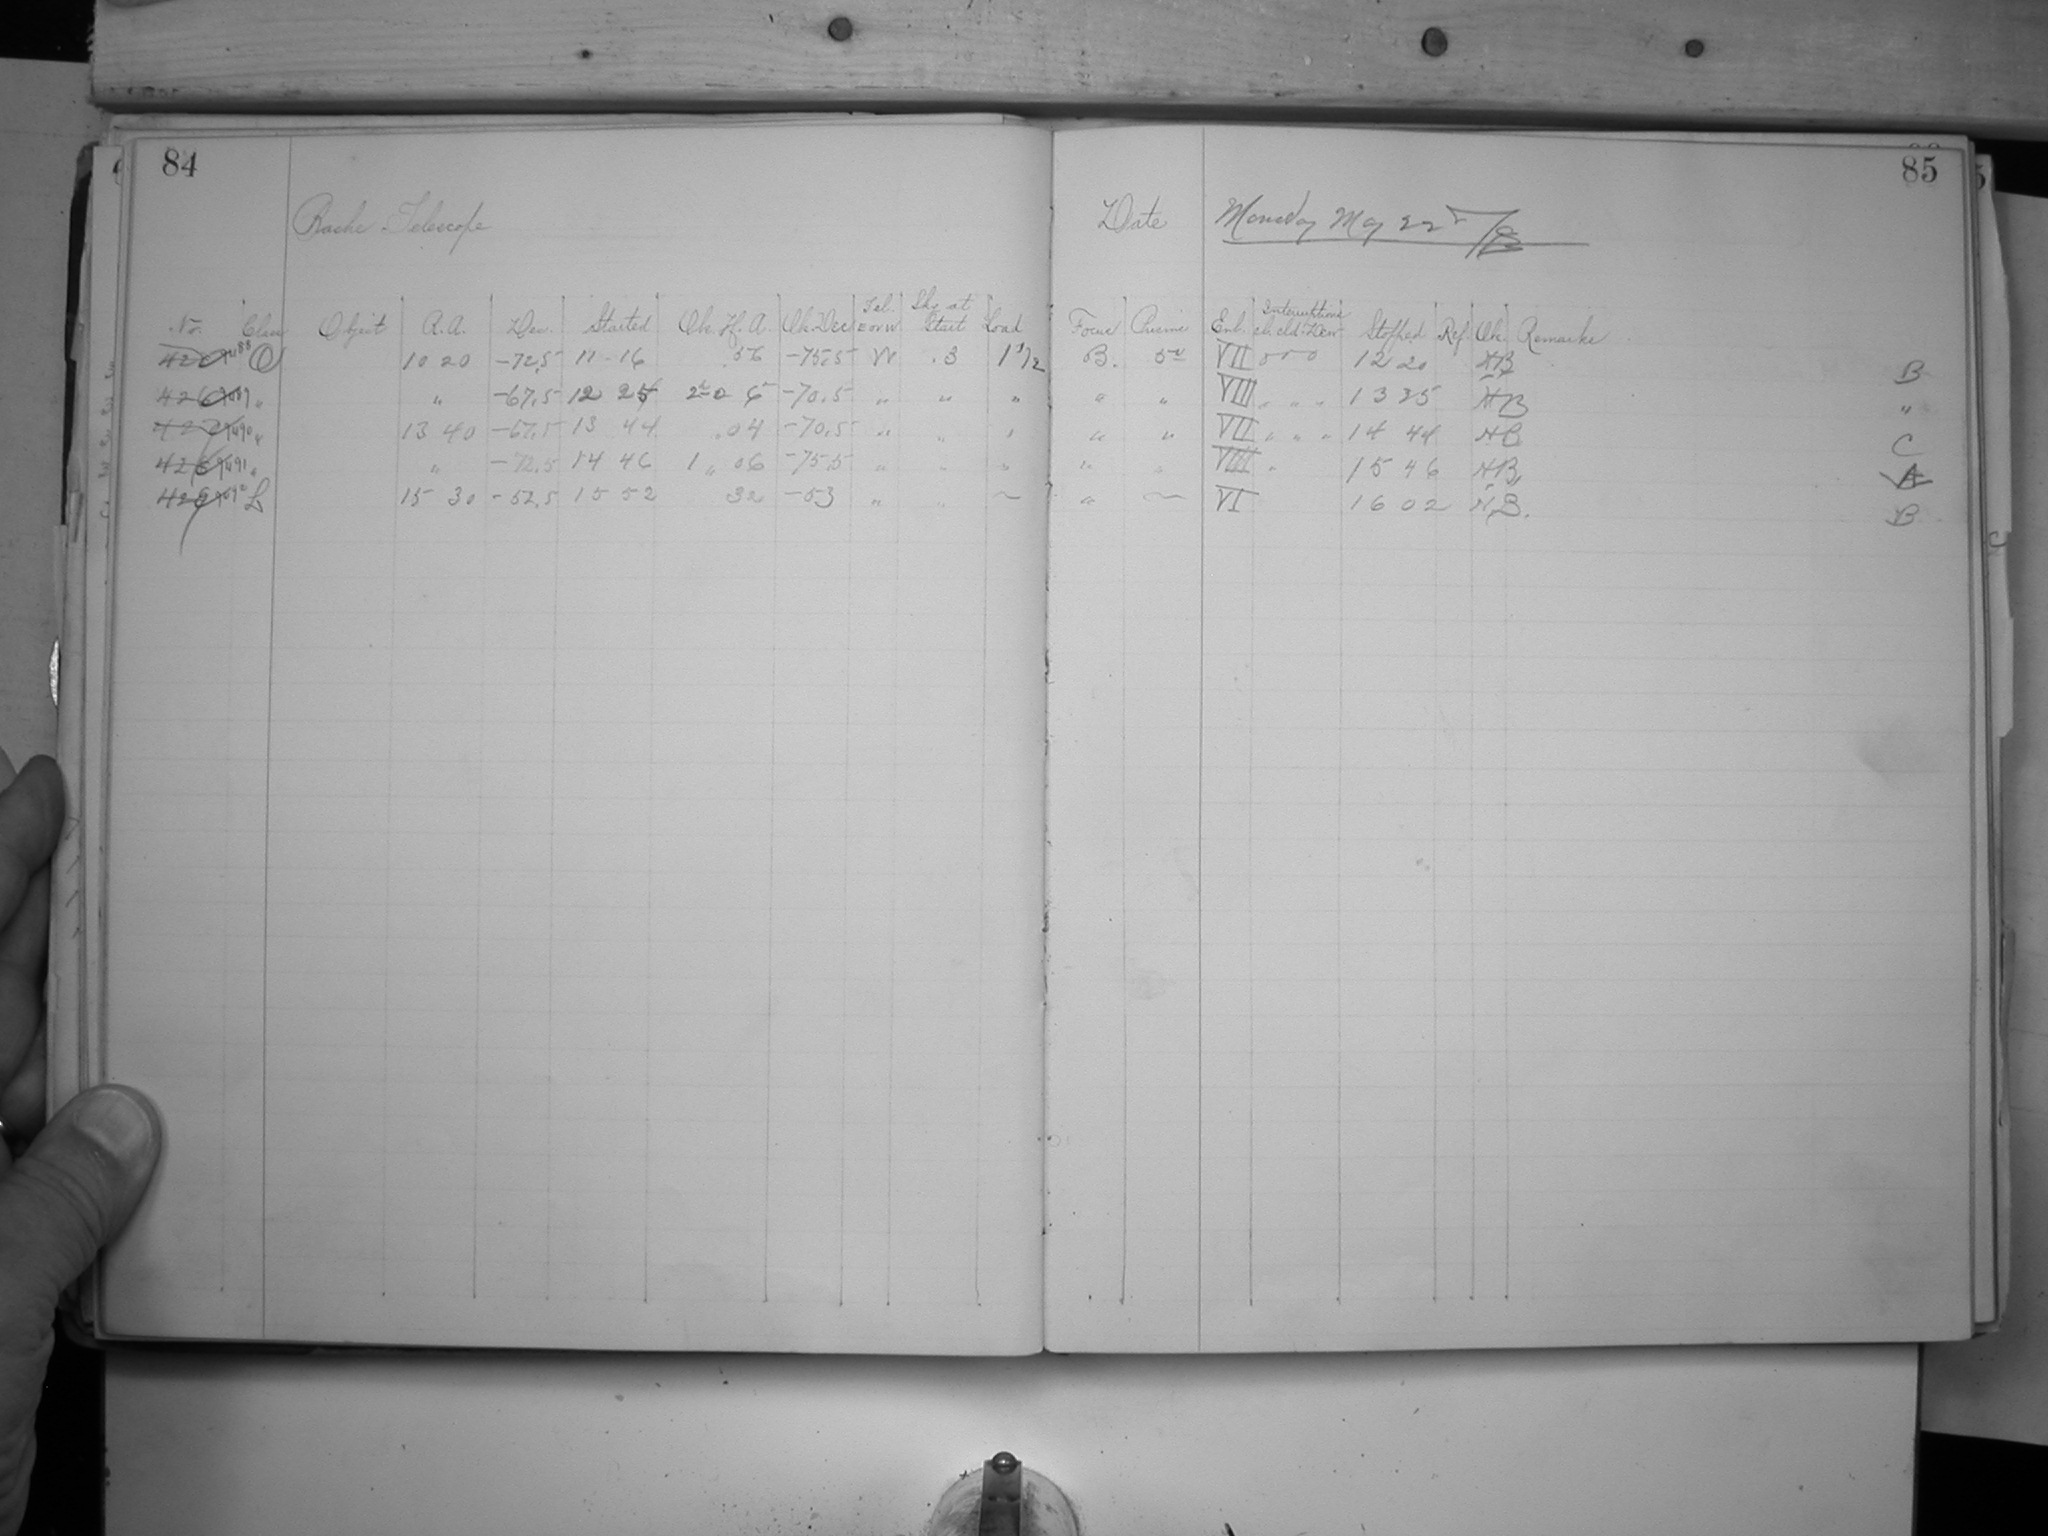 84
85
Bache Telescope
Date Monday May 22nd /93
No. Class Object R.A. Dec. Started Ob. H. A. Ob. Dec Tel. E or W Sky at Start Load Focus Prism Ent. Interruptions Stopped Ref. Ob. Remarks
9488 O 10 20 -72,5 11 16 .56 -75.5 W .3 1 1/2 B. VII 0 0 0 12 20 HB B
9489 " " -67,5 12 25 -70,5 " " " " " VIII " " " 13 25 HB "
9490 " 13 40 -67,5 13 44 .04 -70,5 " " " " " VII " " " 14 44 HB C
9491 " " -72,5 14 46 1 " 06 -75,5 " " " " " VIII " 15 46 HB, A
L 15 30 -52,5 15 52 32 -53 " " ~ " ~ VI 16 02 HB. B